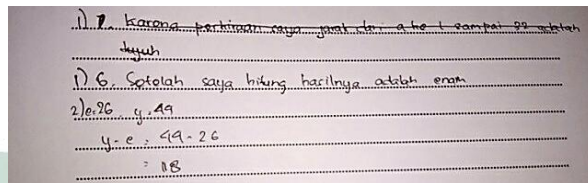 1) 7. Karena perkiraan saya jarak dari a ke t sampai 22 adalah
tujuh
1) 6. Setolah saya hitung hasilnya adalah enam
2) e=26 y=44
y-e = 44-26
= 18